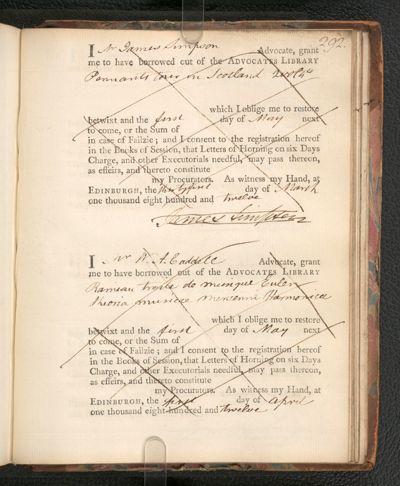 292.
I Mr James Simpson Advocate, grant
me to have borrowed out of the ADVOCATES LIBRARY
Pennants tour in Scotland
which I oblige me to restore
betwixt and the first day of May next
to come, or the Sum of
in case of Failzie; and I consent to the registration hereof
in the Books of Session, that Letters of Horning on six Days
Charge, and other Executorials needful, may pass thereon,
as effeirs, and thereto constitute
my Procurators. As witness my Hand, at
EDINBURGH, the thirty first day of March
one thousand eight hundred and twelve
James Simpson
I Mr W. A. Caddele Advocate, grant
me to have borrowed out of the ADVOCATES LIBRARY
Rameau traite de musique Euleri
theoria musicae Mersenni Harmonica
which I oblige me to restore
betwixt and the first day of May next
to come, or the Sum of
in case of Failzie; and I consent to the registration hereof
in the Books of Session, that Letters of Horning on six Days
Charge, and other Executorials needful, may pass thereon,
as effeirs, and thereto constitute
my Procurators. As witness my Hand, at
EDINBURGH, the first day of April
one thousand eight hundred and twelve